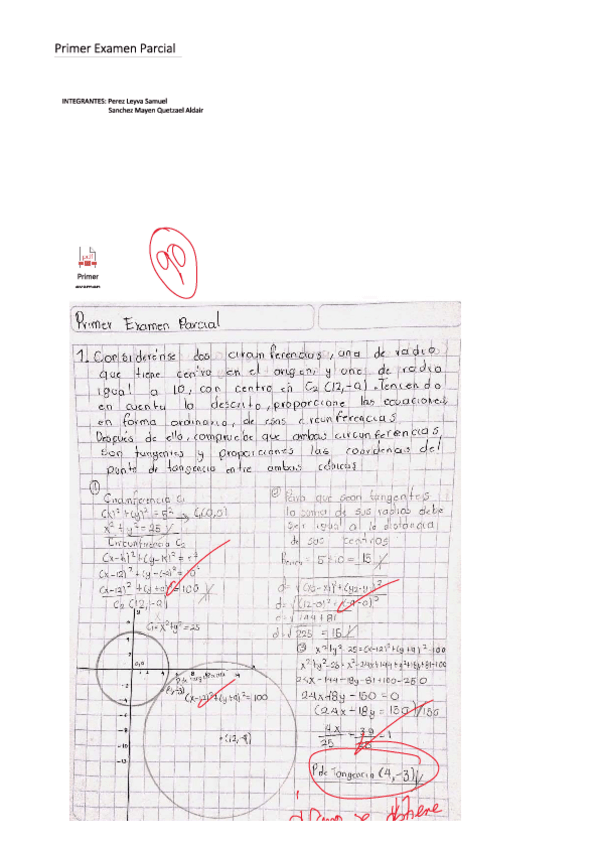 Primer Examen Parcial
INTEGRANTES: Perez Leyva Samuel
Sanchez Mayen Quetzael Aldair
Primer
examen
90
Primer Examen Parcial
1. Considerénse dos circunferencias, una de radio
que tiene centro en el origen y una de radio
igual a 10, con centro en C₂ (12,-9). Teniendo
en cuenta lo descrito, proporcione las ecuaciones
en forma ordinaria, de esas circunferencias
Después de ello, compruebe que ambas circunferencias
son tangentes y proporciones las coordenas del
punto de tangencia entre ambas cónicas
①
Circunferencia C₁
(x)²+(y)²=5² → C₁(0,0)
x²+y²=25
Circunferencia C₂
(x-h)²+(y-k)²=r²
(x-12)²+(y+9)²=100
C₂ (12,-9)
C₁=x²+y²=25
(x-12)²+(y+9)²=100
(12,-9)
② Para que sean tangentes
la suma de sus radios debe
ser igual a la distancia
de sus centros
=15
d=√(x₂-x₁)²+(y₂-y₁)²
d=√(12-0)²+(-9-0)²
d=√144+81
d=√225=15
③ x²+y²-25=(x-12)²+(y+9)²-100
x²+y²-25=x²-24x+144+y²+18y+81-100
24x-18y-150=0
(24x-18y=150)/150
4x
25
P de Tangencia (4,-3)
se obtiene